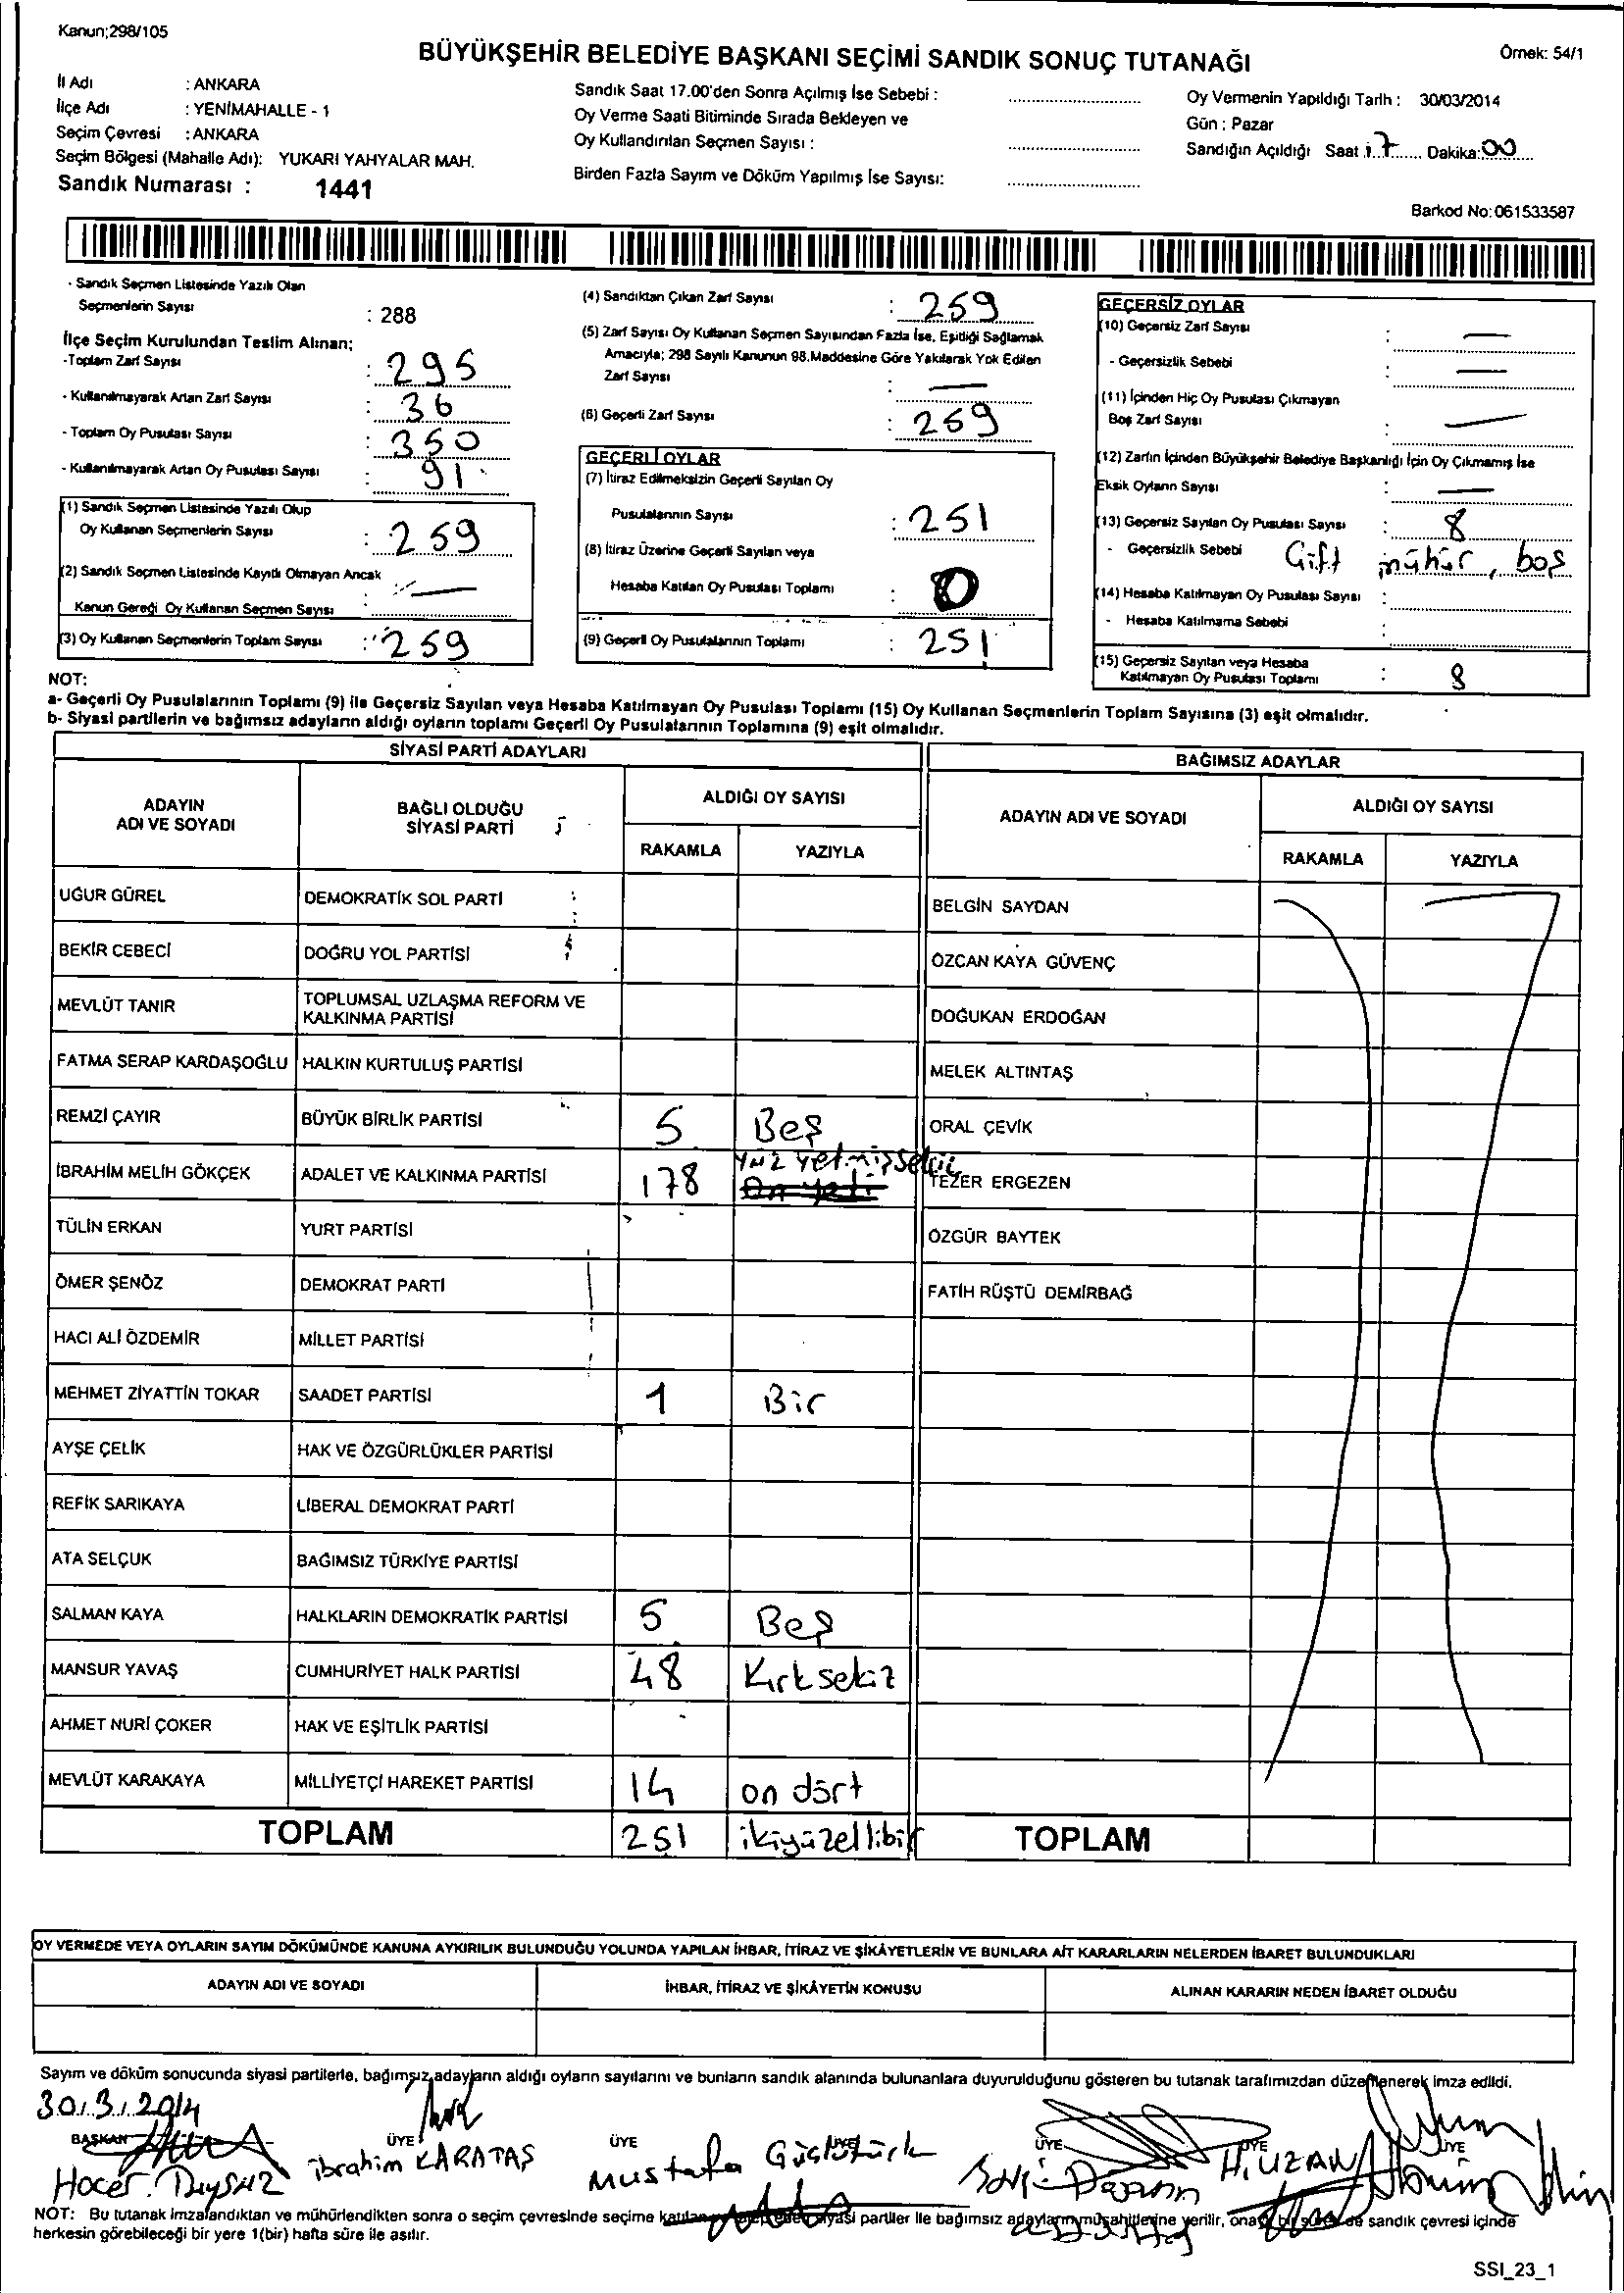 Kanun;298/105
BÜYÜKŞEHİR BELEDİYE BAŞKANI SEÇİMİ SANDIK SONUÇ TUTANAĞI
Örnek: 54/1
İl Adı : ANKARA
İlçe Adı : YENİMAHALLE - 1
Seçim Çevresi : ANKARA
Seçim Bölgesi (Mahalle Adı): YUKARI YAHYALAR MAH.
Sandık Numarası : 1441
Sandık Saat 17.00'den Sonra Açılmış İse Sebebi :
Oy Verme Saati Bitiminde Sırada Bekleyen ve
Oy Kullandırılan Seçmen Sayısı :
Birden Fazla Sayım ve Döküm Yapılmış İse Sayısı:
Oy Vermenin Yapıldığı Tarih : 30/03/2014
Gün : Pazar
Sandığın Açıldığı Saat : 17 Dakika: 00
Barkod No: 061533587
- Sandık Seçmen Listesinde Yazılı Olan
Seçmenlerin Sayısı : 288
İlçe Seçim Kurulundan Teslim Alınan;
-Toplam Zarf Sayısı : 295
- Kullanılmayarak Artan Zarf Sayısı : 36
- Toplam Oy Pusulası Sayısı : 350
- Kullanılmayarak Artan Oy Pusulası Sayısı : 91
(1) Sandık Seçmen Listesinde Yazılı Olup
Oy Kullanan Seçmenlerin Sayısı : 259
(2) Sandık Seçmen Listesinde Kayıtlı Olmayan Ancak
Kanun Gereği Oy Kullanan Seçmen Sayısı : —
(3) Oy Kullanan Seçmenlerin Toplam Sayısı : 259
(4) Sandıktan Çıkan Zarf Sayısı : 259
(5) Zarf Sayısı Oy Kullanan Seçmen Sayısından Fazla İse, Eşitliği Sağlamak
Amacıyla; 298 Sayılı Kanunun 98.Maddesine Göre Yakılarak Yok Edilen
Zarf Sayısı : —
(6) Geçerli Zarf Sayısı : 259
GEÇERLİ OYLAR
(7) İtiraz Edilmeksizin Geçerli Sayılan Oy
Pusulalarının Sayısı : 251
(8) İtiraz Üzerine Geçerli Sayılan veya
Hesaba Katılan Oy Pusulası Toplamı : 0
(9) Geçerli Oy Pusulalarının Toplamı : 251
GEÇERSİZ OYLAR
(10) Geçersiz Zarf Sayısı : —
- Geçersizlik Sebebi : —
(11) İçinden Hiç Oy Pusulası Çıkmayan
Boş Zarf Sayısı : —
(12) Zarfın İçinden Büyükşehir Belediye Başkanlığı İçin Oy Çıkmamış İse
Eksik Oyların Sayısı : —
(13) Geçersiz Sayılan Oy Pusulası Sayısı : 8
- Geçersizlik Sebebi Çift mühür, boş
(14) Hesaba Katılmayan Oy Pusulası Sayısı :
- Hesaba Katılmama Sebebi :
(15) Geçersiz Sayılan veya Hesaba
Katılmayan Oy Pusulası Toplamı : 8
NOT:
a- Geçerli Oy Pusulalarının Toplamı (9) ile Geçersiz Sayılan veya Hesaba Katılmayan Oy Pusulası Toplamı (15) Oy Kullanan Seçmenlerin Toplam Sayısına (3) eşit olmalıdır.
b- Siyasi partilerin ve bağımsız adayların aldığı oyların toplamı Geçerli Oy Pusulalarının Toplamına (9) eşit olmalıdır.
SİYASİ PARTİ ADAYLARI
ADAYIN ADI VE SOYADI
BAĞLI OLDUĞU SİYASİ PARTİ
ALDIĞI OY SAYISI
RAKAMLA YAZIYLA
UĞUR GÜREL DEMOKRATİK SOL PARTİ
BEKİR CEBECİ DOĞRU YOL PARTİSİ
MEVLÜT TANIR TOPLUMSAL UZLAŞMA REFORM VE KALKINMA PARTİSİ
FATMA SERAP KARDAŞOĞLU HALKIN KURTULUŞ PARTİSİ
REMZİ ÇAYIR BÜYÜK BİRLİK PARTİSİ 5 Beş
İBRAHİM MELİH GÖKÇEK ADALET VE KALKINMA PARTİSİ 178 yüz yetmiş sekiz
TÜLİN ERKAN YURT PARTİSİ
ÖMER ŞENÖZ DEMOKRAT PARTİ
HACI ALİ ÖZDEMİR MİLLET PARTİSİ
MEHMET ZİYATTİN TOKAR SAADET PARTİSİ 1 Bir
AYŞE ÇELİK HAK VE ÖZGÜRLÜKLER PARTİSİ
REFİK SARIKAYA LİBERAL DEMOKRAT PARTİ
ATA SELÇUK BAĞIMSIZ TÜRKİYE PARTİSİ
SALMAN KAYA HALKLARIN DEMOKRATİK PARTİSİ 5 Beş
MANSUR YAVAŞ CUMHURİYET HALK PARTİSİ 48 Kırk sekiz
AHMET NURİ ÇOKER HAK VE EŞİTLİK PARTİSİ
MEVLÜT KARAKAYA MİLLİYETÇİ HAREKET PARTİSİ 14 on dört
TOPLAM 251 ikiyüzellibir
BAĞIMSIZ ADAYLAR
ADAYIN ADI VE SOYADI
ALDIĞI OY SAYISI
RAKAMLA YAZIYLA
BELGİN SAYDAN
ÖZCAN KAYA GÜVENÇ
DOĞUKAN ERDOĞAN
MELEK ALTINTAŞ
ORAL ÇEVİK
TEZER ERGEZEN
ÖZGÜR BAYTEK
FATİH RÜŞTÜ DEMİRBAĞ
TOPLAM
OY VERMEDE VEYA OYLARIN SAYIM DÖKÜMÜNDE KANUNA AYKIRILIK BULUNDUĞU YOLUNDA YAPILAN İHBAR, İTİRAZ VE ŞİKÂYETLERİN VE BUNLARA AİT KARARLARIN NELERDEN İBARET BULUNDUKLARI
ADAYIN ADI VE SOYADI
İHBAR, İTİRAZ VE ŞİKÂYETİN KONUSU
ALINAN KARARIN NEDEN İBARET OLDUĞU
Sayım ve döküm sonucunda siyasi partilerle, bağımsız adayların aldığı oyların sayılarını ve bunların sandık alanında bulunanlara duyurulduğunu gösteren bu tutanak tarafımızdan düzenlenerek imza edildi.
30.3.2014
BAŞKAN ÜYE ÜYE ÜYE ÜYE ÜYE
Hacer ibrahim KARATAŞ Mustafa H. UZAN
NOT: Bu tutanak imzalandıktan ve mühürlendikten sonra o seçim çevresinde seçime katılan siyasi partiler ile bağımsız adayların müşahitlerine verilir, sandık çevresi içinde
herkesin görebileceği bir yere 1(bir) hafta süre ile asılır.
SSI_23_1